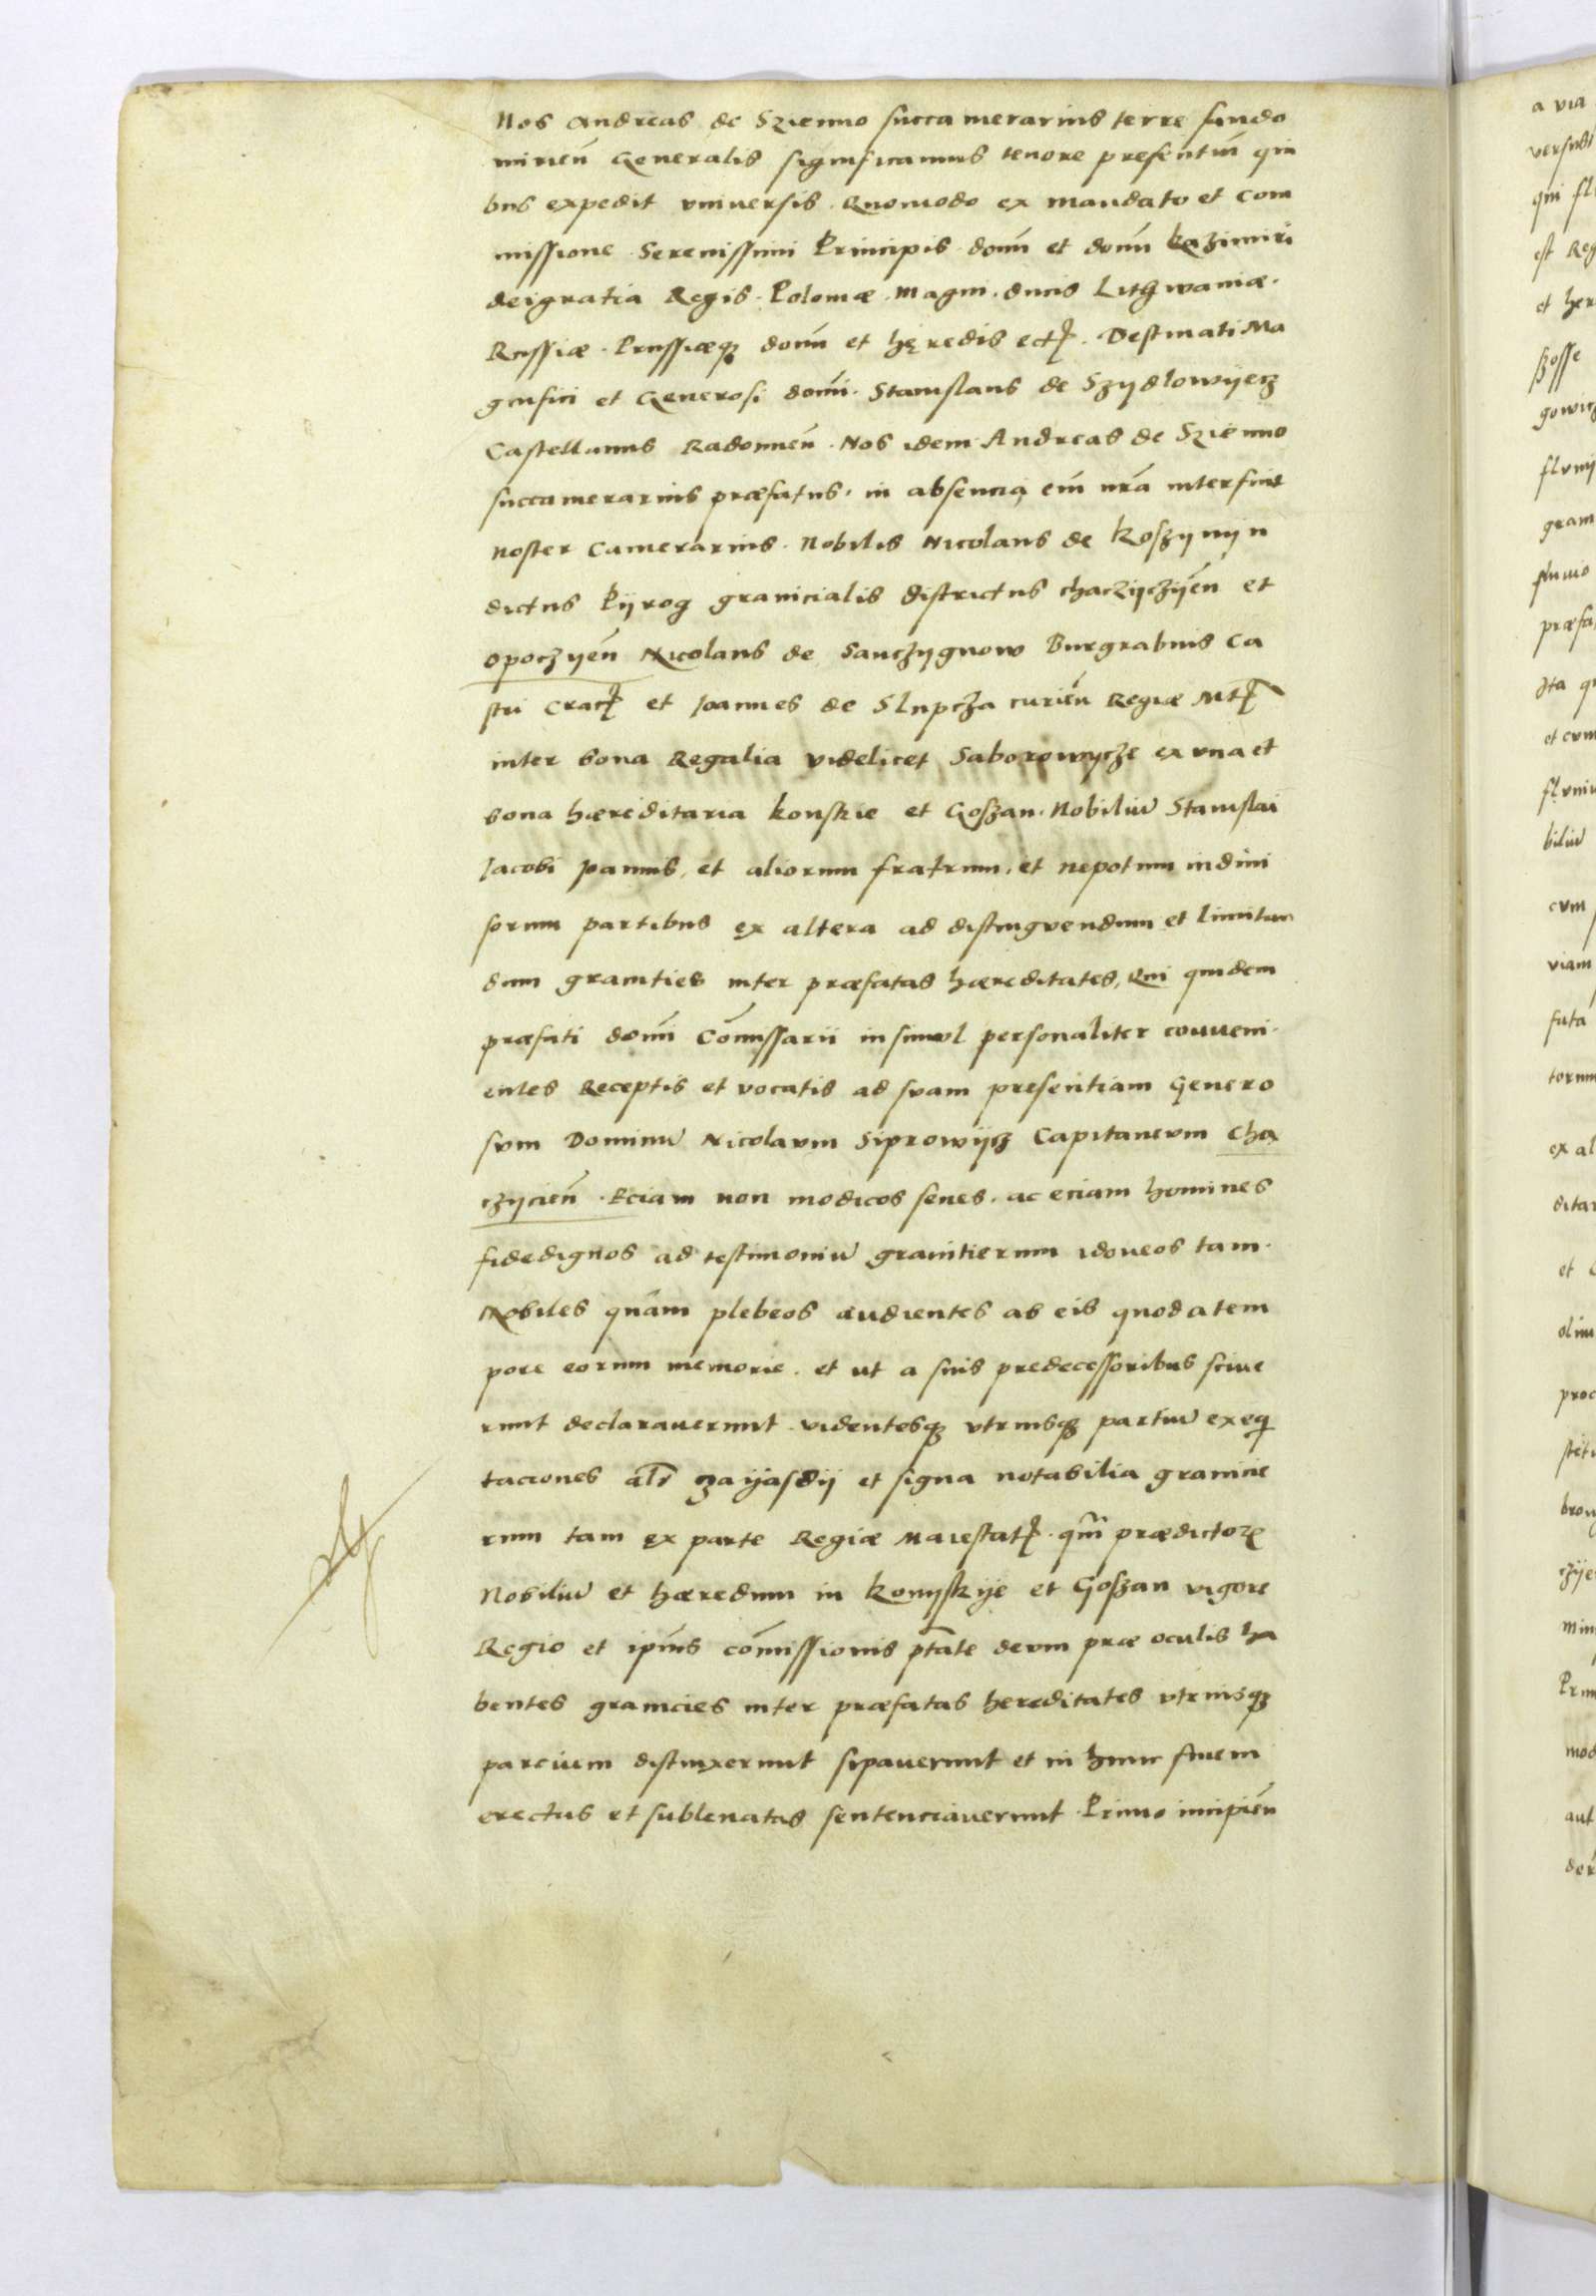 Nos Andreas de Szienno succamerarius terre sando
mirien̄ Generalis significamus tenore presentiū qui
bus expedit vniuersis. Quomodo ex mandato et com
missione Serenissimi Principis domī et domī Kazimiri
deigratia Regis. Poloniæ. Magni. ducis Lithwaniæ.
Russiæ. Prussiæqȝ domī et hęredis ectꝭ. Destinati Ma
gnifici et Generosi domī. Stanislaus de Szydlowyecz
Castellanus Radomien̄. Nos idem Andreas de Szienno
succamerarius præfatus. in absencia em̄ nrā interfuit
noster Camerarius. Nobilis Nicolaus de Koszynyn
dictus Pyrog granicialis districtus chaczyczyen̄ et
opoczyen̄ Nicolaus de Sanczygnow Burgrabius Ca
stri Cracꝭ et Joannes de Slupcza curien̄ Regiæ Mtꝭ
inter bona Regalia videlicet Saborowycze ex vna et
bona hæreditaria Konskie et Goszan. Nobiliū Stanislai
Jacobi Joannis, et aliorum fratrum. et nepotum indiui
sorum partibus ex altera ad distingvendum et limitan
dum granities inter præfatas hæreditates, Qui quidem
præfati domī Com̄issarii insimvl personaliter conveni
entes Receptis et vocatis ad svam presentiam Genero
svm Dominū Nicolavm Siprowycz Capitanevm Cha
czycien̄. Eciam non modicos senes. ac eciam homines
fidedignos ad testimoniū granitierum idoneos tam.
Nobiles quàm plebeos audientes ab eis quod a tem
pore eorum memorie. et ut a suis predecessoribus sciue
runt declarauerunt. videntesqȝ vtriusqȝ partiū exeqi
taciones alr̄ zayasdy et signa notabilia granicie
rum tam ex parte Regiæ Maiestatꝭ. qm̄ prædictoꝝ
Nobiliū et hæredum in Konyskye et Goszan vigore
Regio et ipīus com̄issionis ptāte devm præ oculis ha
bentes granicies inter præfatas hereditates vtriusqȝ
parcium distinxerunt sipauerunt et in hunc finem
erectas et subleuatas sentenciaverunt. Primo incipien̄